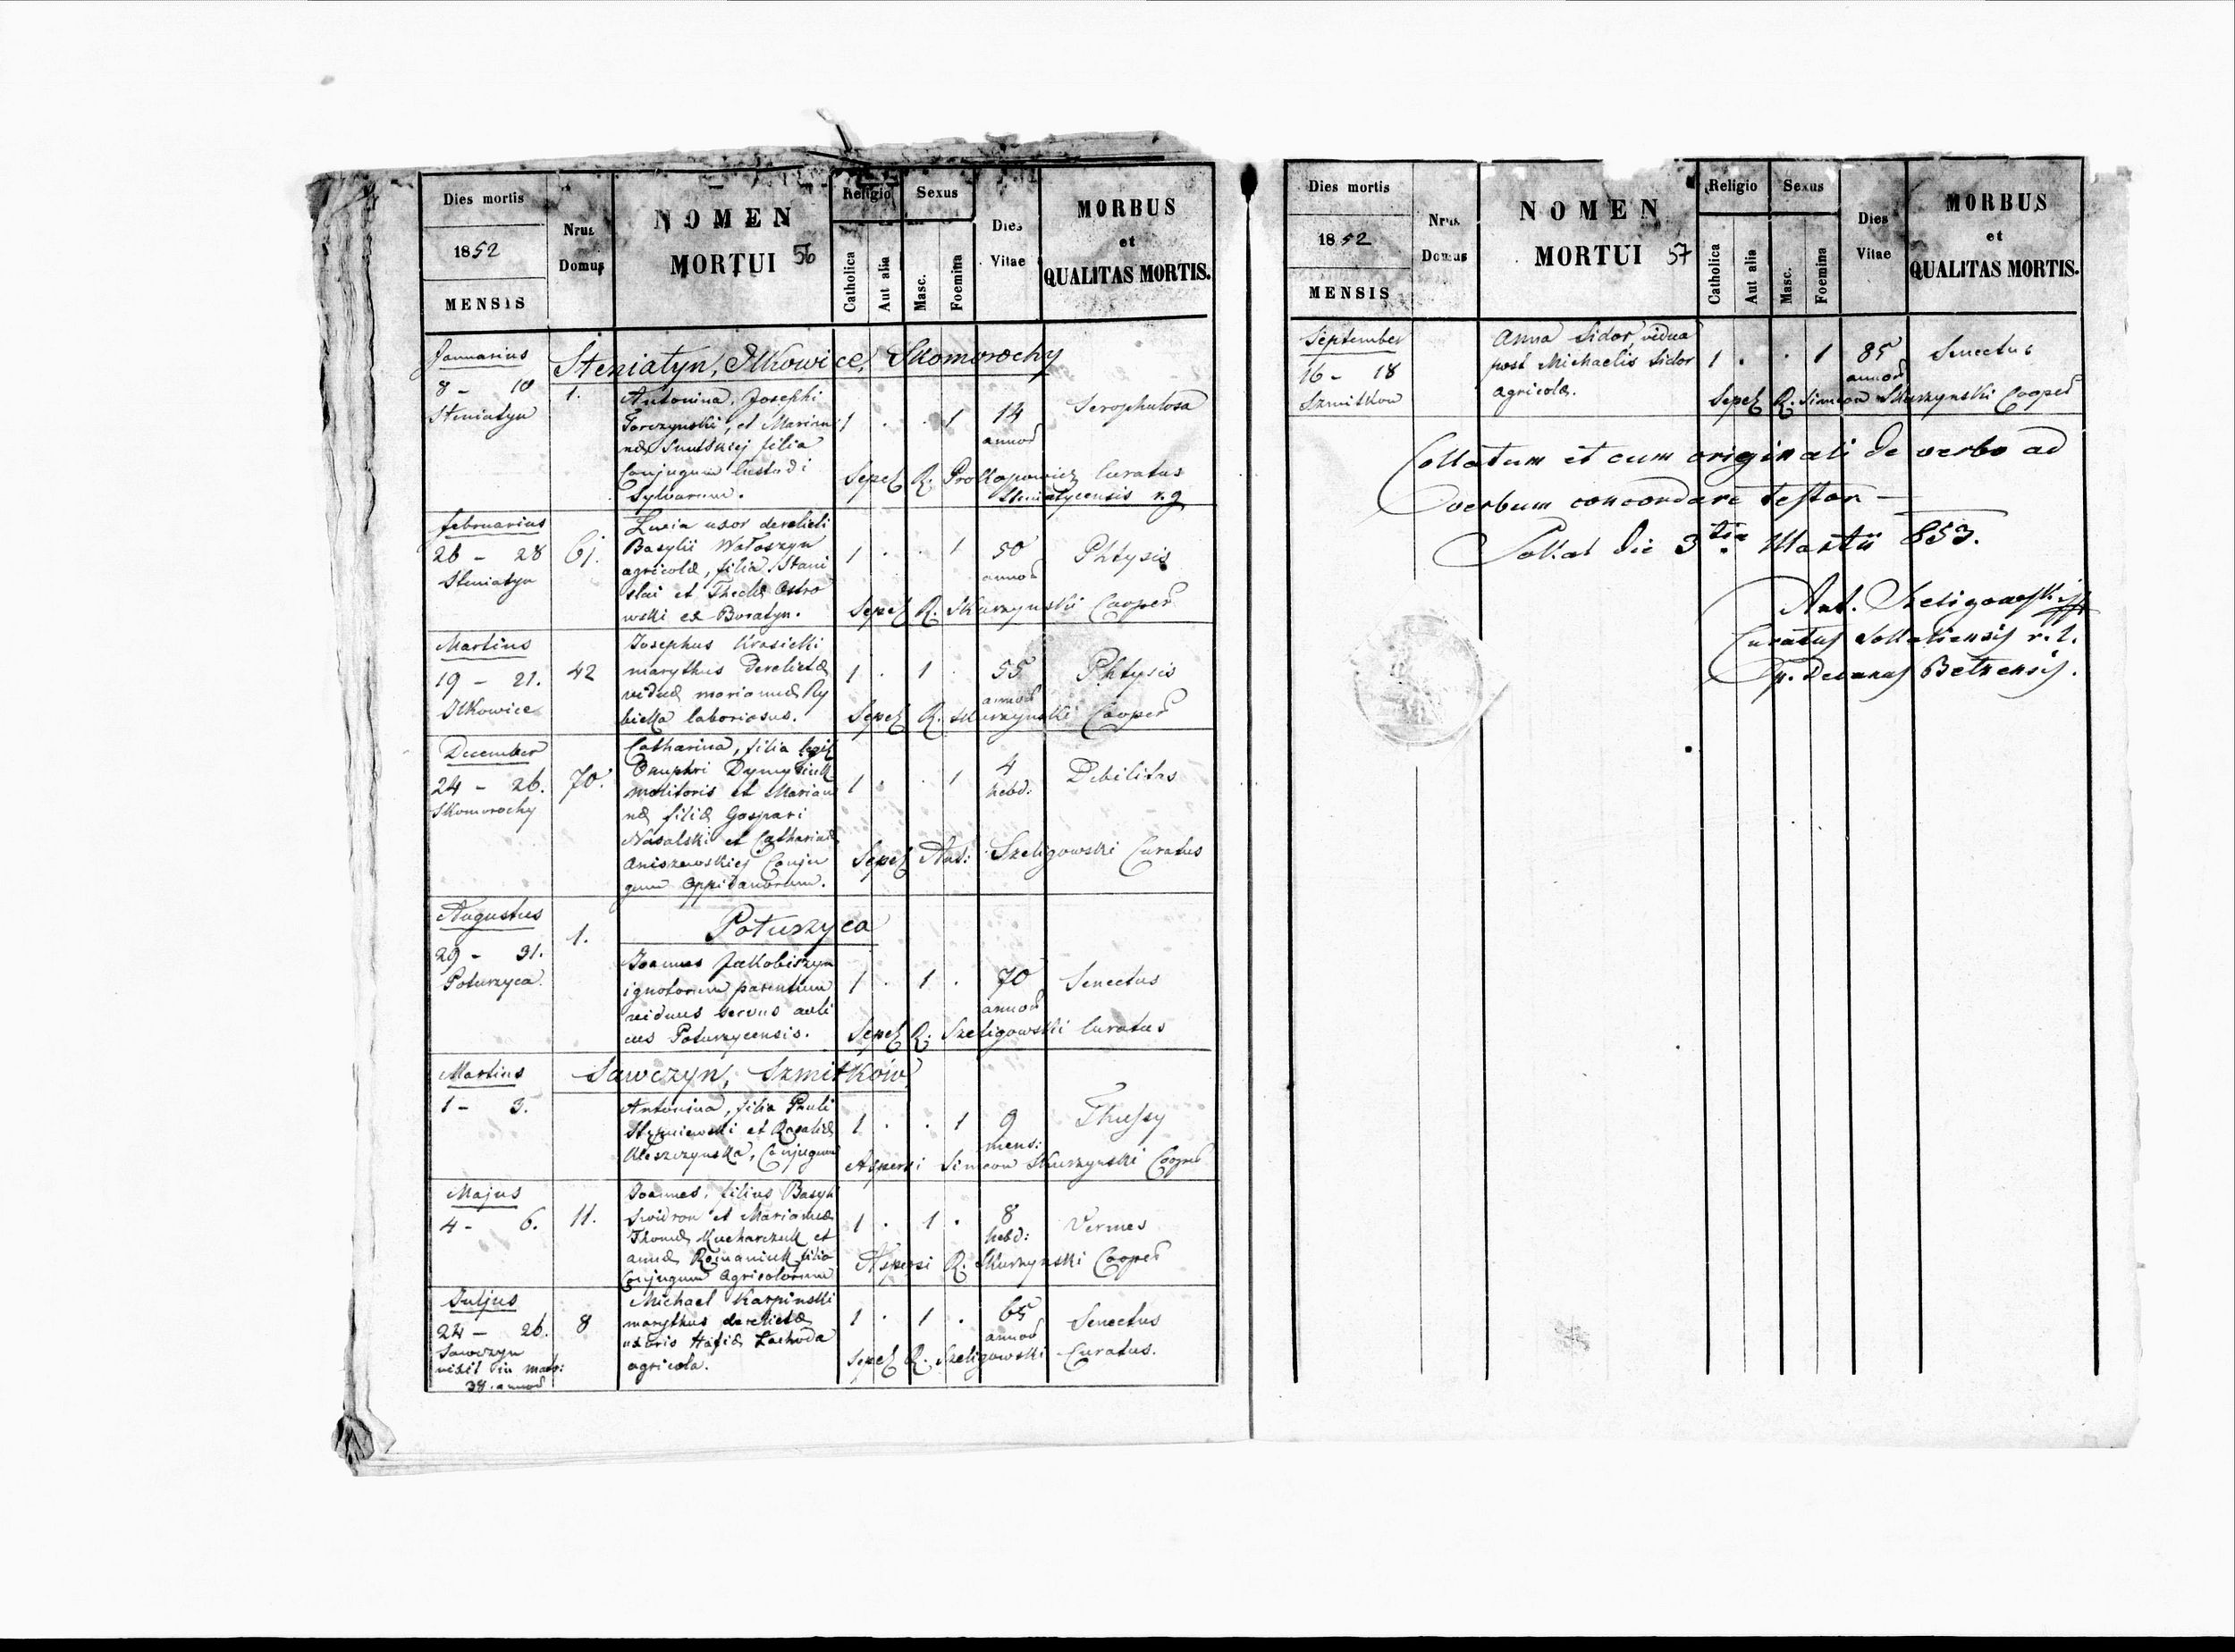 Dies mortis
1852
MENSIS
Nrus
Domus
NOMEN
MORTUI 56
Religio
Catholica
Aut alia
Sexus
Masc.
Foemina
Dies
Vitae
MORBUS
et
QUALITAS MORTIS.
Januarius
Steniatyn, Ilkowice, Skomorochy
8 - 10
Steniatyn
1.
Antonina, Josephi
Torczynski, et Marian
næ filia
Conjugum Custodi
Sylvarum.
1 . . 1
14
annor
Scrophulosa
Sepel R. Prokopowicz Curatus
Steniatycensis r. g
Februarius
26 - 28
Steniatyn
61.
Lucia uxor derelicti
Basylii Wołoszyn
agricolæ, filia Stani
slai et Theclæ Ostro
wski ex Boratyn.
1 . . 1
50
annor
Phtysis
Sepel R. Skurzynski Cooper
Martius
19 - 21.
Ilkowice
42
Josephus Krasicki
marythus derelictæ
viduæ mariannæ Ry
bicka laboriosus.
1 . 1 .
55
annor
Phtysis
Sepel R. Skurzynski Cooper
December
24 - 26.
Skomorochy
70.
Catharina, filia legit
Onuphri
molitoris et Marian
næ filiæ Gaspari
Nasalski et Catharinæ
Aniszewskiej Conju
gum oppidanorum.
1 . . 1
4
hebd:
Debilitas
Sepel Ant: Szeligowski Curatus
Augustus
29 - 31.
Poturzyca.
1.
Poturzyca
Joannes Jakobiszyn
ignotorum parentum
viduus servus auli
cus Poturzycensis.
1 . 1 .
70
annor
Senectus
Sepel R. Szeligowski Curatus
Martius
Sawczyn, Szmitków
1 - 3.
Antonina, filia Pauli
et Rosaliæ
Kleszczynska, Conjugum
1 . . 1
9
mens:
Thussy
Aspersi Simeon Skurzynski Cooper
Majus
4 - 6.
11.
Joannes, filius Basyli
Swidron et Mariannæ
Thomæ Kucharczuk et
annæ Romaniuk filia
Conjugum agricolorum
1 . 1 .
8
hebd:
Vermes
Aspersi R. Skurzynski Cooper
Juljus
24 - 26.
Sawczyn
vixit in matr:
38. annor
8
Michael Karpinski
marythus derelictæ
uxoris Hafiæ Lachoda
agricola.
1 . 1 .
65
annor
Senectus
Sepel R. Szeligowski Curatus.
Dies mortis
1852
MENSIS
Nrus
Domus
NOMEN
MORTUI 57
Religio
Catholica
Aut alia
Sexus
Masc.
Foemina
Dies
Vitae
MORBUS
et
QUALITAS MORTIS.
September
16 - 18
Szmitkow
Anna Sidor, vidua
post Michaelis Sidor
agricolæ.
1 . . 1
85
annor
Senectus
Sepel R. Simeon Skurzynski Cooper
Collatum et cum originali de verbo ad
verbum concordare testor -
Sokal die 3tia Martii 853.
Ant. Szeligowski
Curatus Sokaliensis r. l.
Decanus Belzensis.